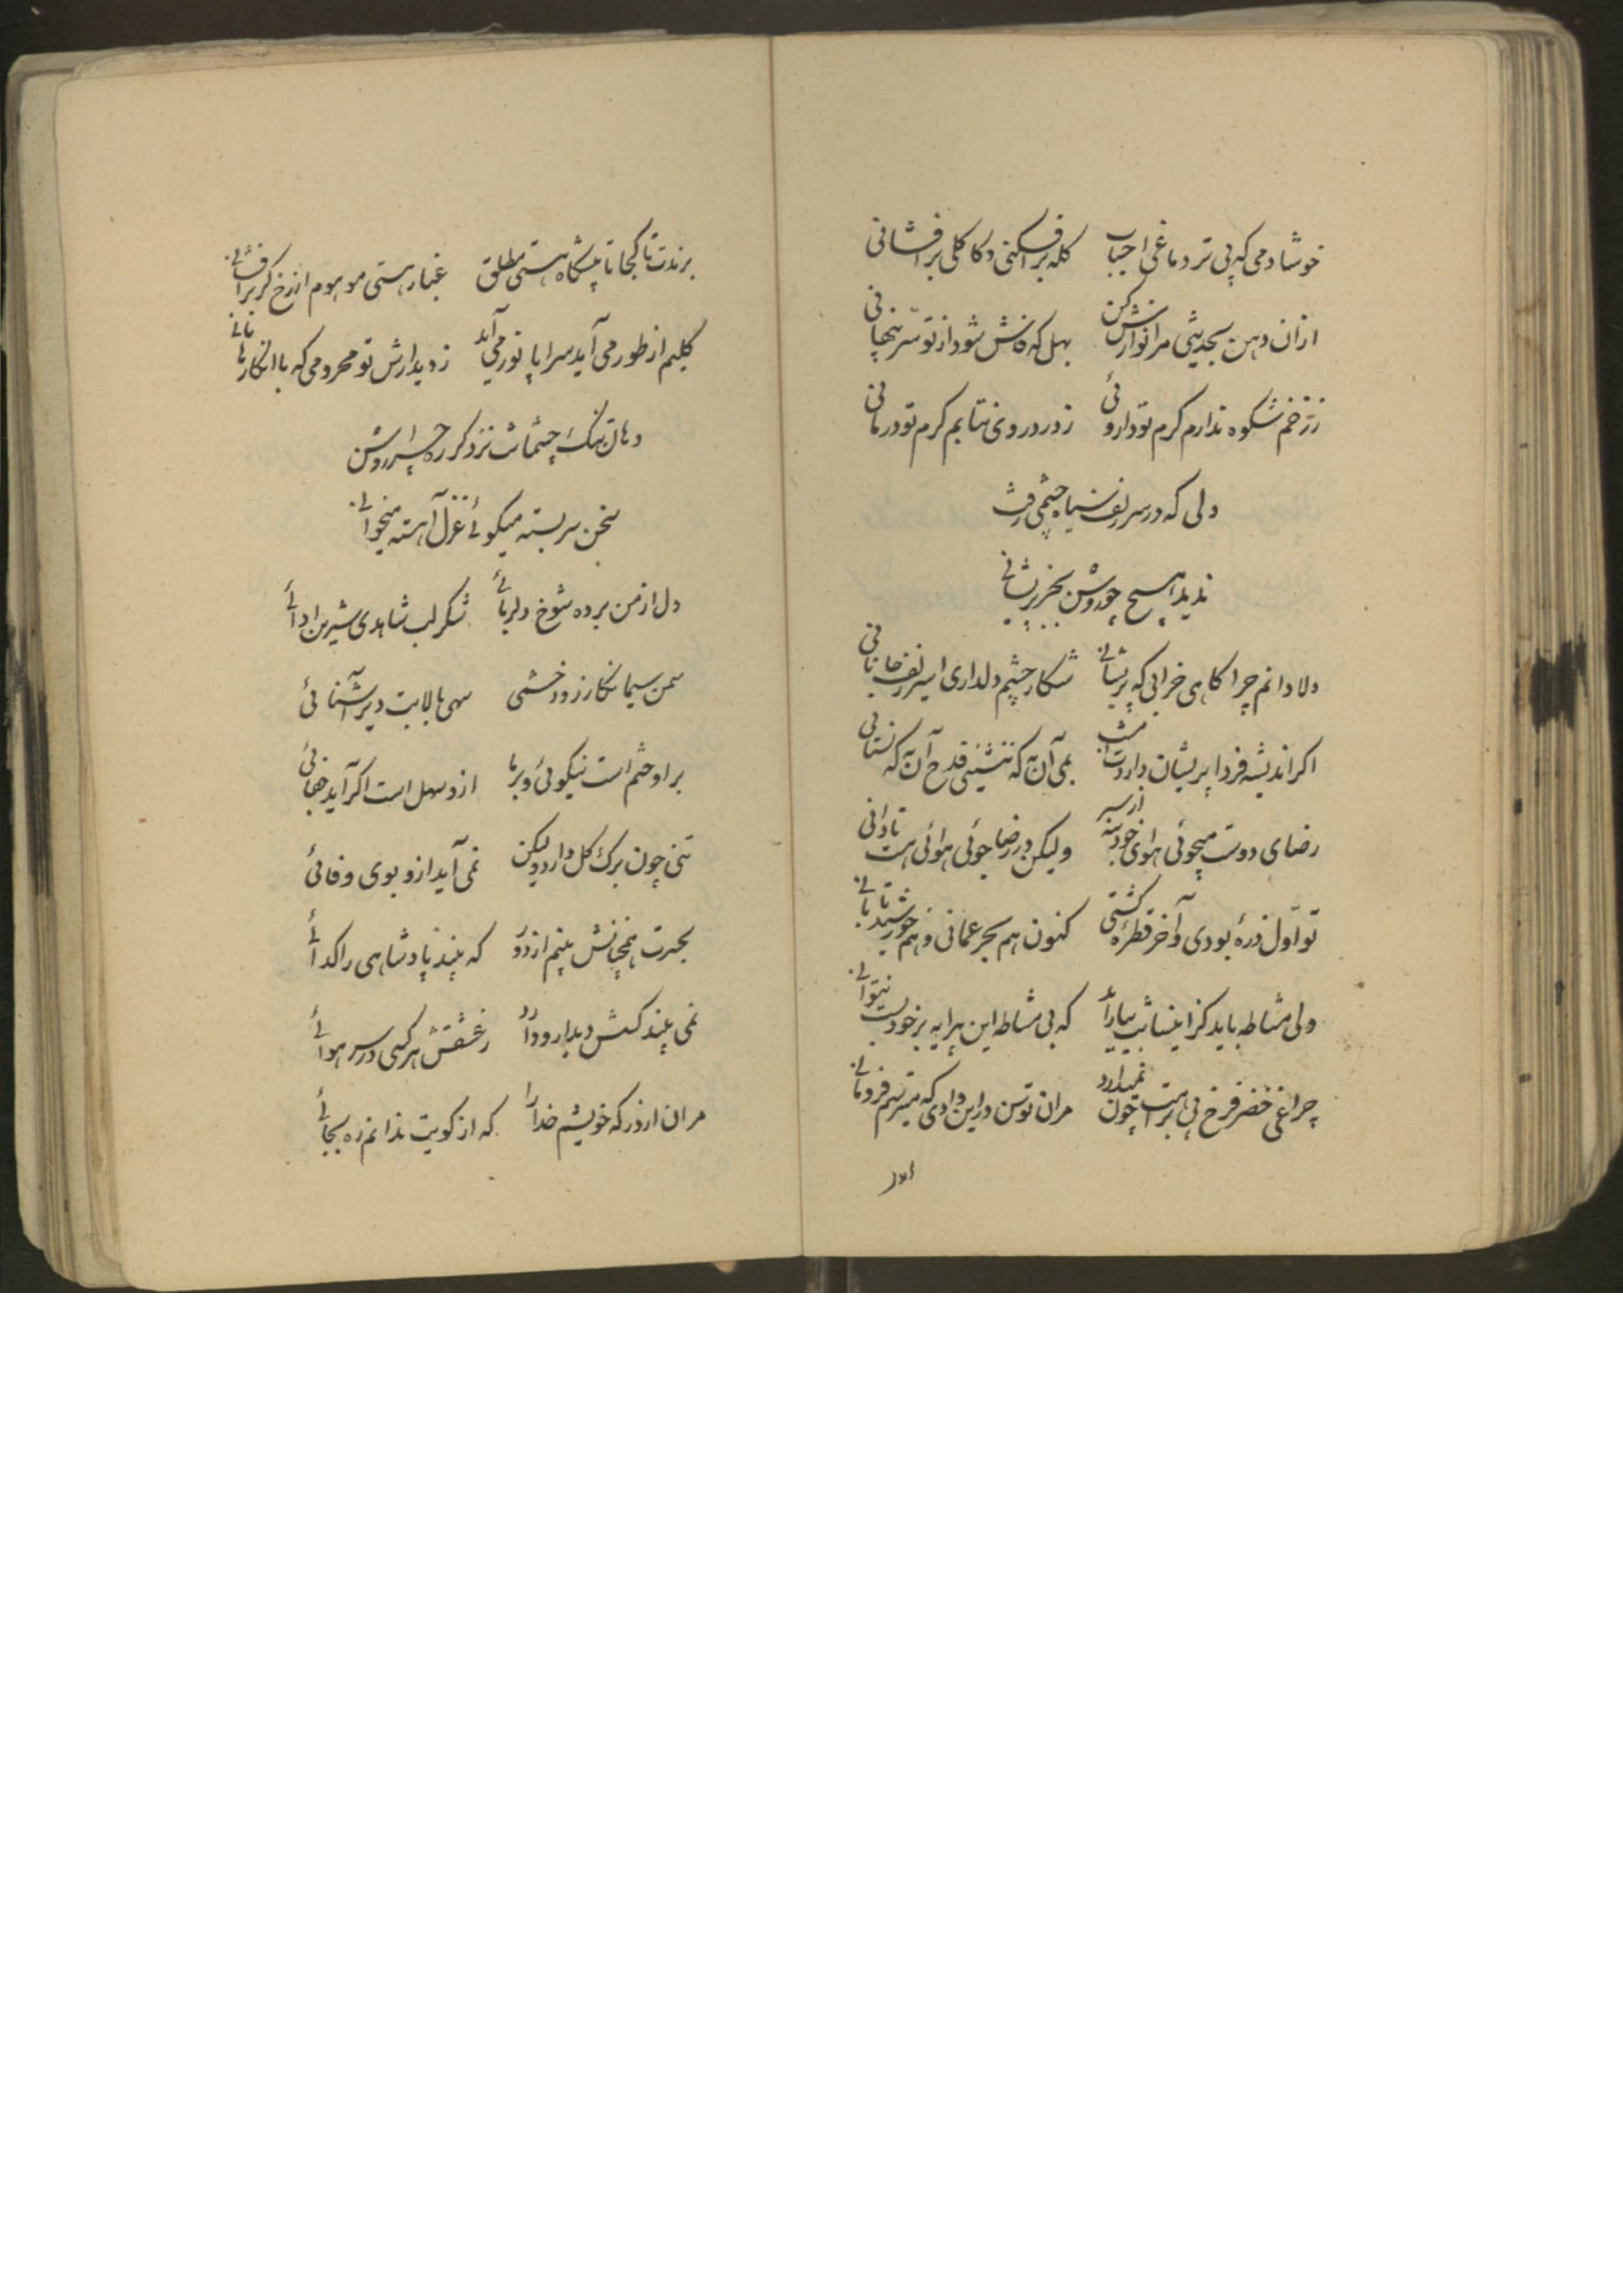 خوشا دمی که پی تر دماغی احباب کله برافکنی و کاکلی برافشانی
ازان دهن بحدیثی مرا نوازش کن بهل که فاش شود از تو سر پنهانی
ز زخم شکوه ندارم کرم تو داروئی ز درد روی نتابم کرم تو درمانی
دلی که در سر زلف سیاه چشمی رفت
ندید هیچ چو روشن بجز پریشانی
دلا دانم چرا کاهی خرابی که پریشانی شکار چشم دلداری اسیر زلف جانانی
اکر اندیشه فردا پریشان داردت امشب بمی آن به که ننشینی قدح آن به که نستانی
رضای دوست میجوئی هوای خود بنه از سر ولیکن در رضا جوئی هوائی هست تا دانی
تو اول ذره بودی و آخر قطره کشتی کنون هم بحر عمانی و هم خورشید تابانی
ولی مشاطه باید کز اینسانت بیاراید که بی مشاطه این پیرایه بر خود بست نتوانی
چراغی خضر فرخ پی براهت چون نمیدارد مران توسن در این وادی که میترسم فرو مانی
برندت تا کجا تا پیشکاه هستی مطلق غبار هستی موهوم از رخ کر برافشانی
کلیم از طور می آید سراپا نور می آید ز دیدارش تو محرومی که با انکار هامانی
دهان تنک چشمانت نزد کر راه چرا روشن
سخن سربسته میکوئی غزل آهسته میخوانی
دل از من برده شوخ دلربائی شکر لب شاهدی شیرین ادائی
سمن سیما نکار زود خشمی سهی بالا بت دیر آشنائی
بر او ختم است نیکوئی و بر ما ازو سهل است اکر آید جفائی
تنی چون برک کل دارد ولیکن نمی آید ازو بوی وفائی
بحسرت همچنانش بینم از دور که بیند پادشاهی را کدائی
نمی بیند کسش دیدار و دارد ز عشقش هر کسی در سر هوائی
مران از در که خویشم خدا را که از کویت ندانم ره بجائی